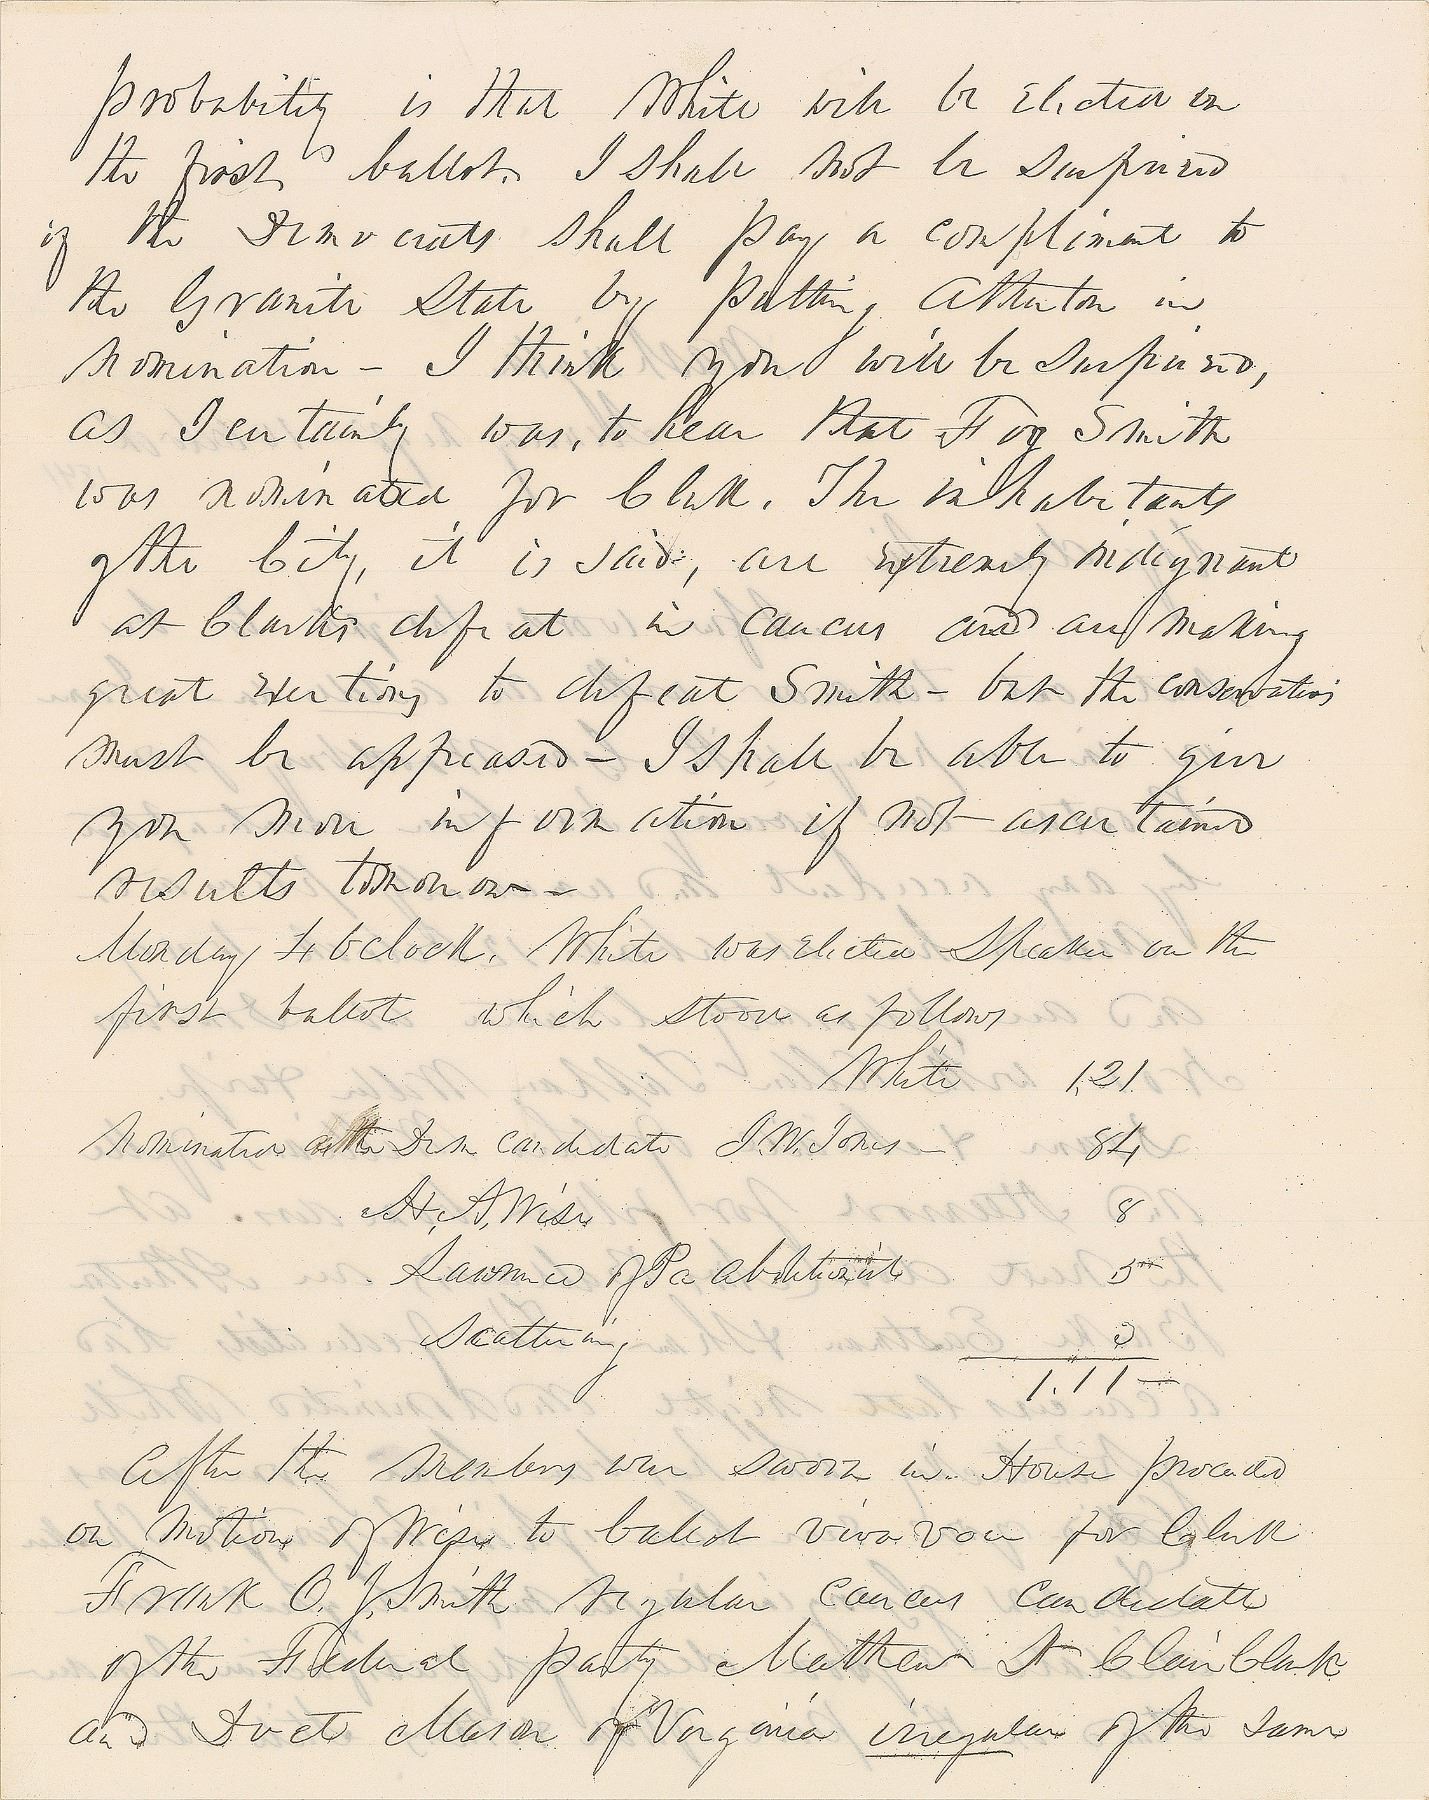 probability is that White will be elected on
the first ballot. I shall not be surprised
if the Democrats shall pay a compliment to
the Granite State by putting Atherton in
nomination – I think you will be surprised,
as I certainly was, to hear that Fog Smith
was nominated for Clerk. The inhabitants
of the City, it is said, are extremely indignant
at Clarks defeat in caucus and are making
great exertions to defeat Smith – but the conservatives
must be appeased – I shall be able to give
you more information if not ascertained
results tomorrow –
Monday 4 oclock. White was elected Speaker on the
first ballot which stood as follows
White 121
Nominated as the Dem candidate J. W. Jones – 84
H. A. Wise 8
Lawrence of Pa abolitionist 5
Scattering 3
1.11 –
After the members were sworn in. House proceeded
on motion of Wise to ballot viva voce for Clerk
Frank O. J. Smith regular caucus candidate
of the Federal party Matthew St Clair Clark
and Doct Mason of Virginia irregular of the same